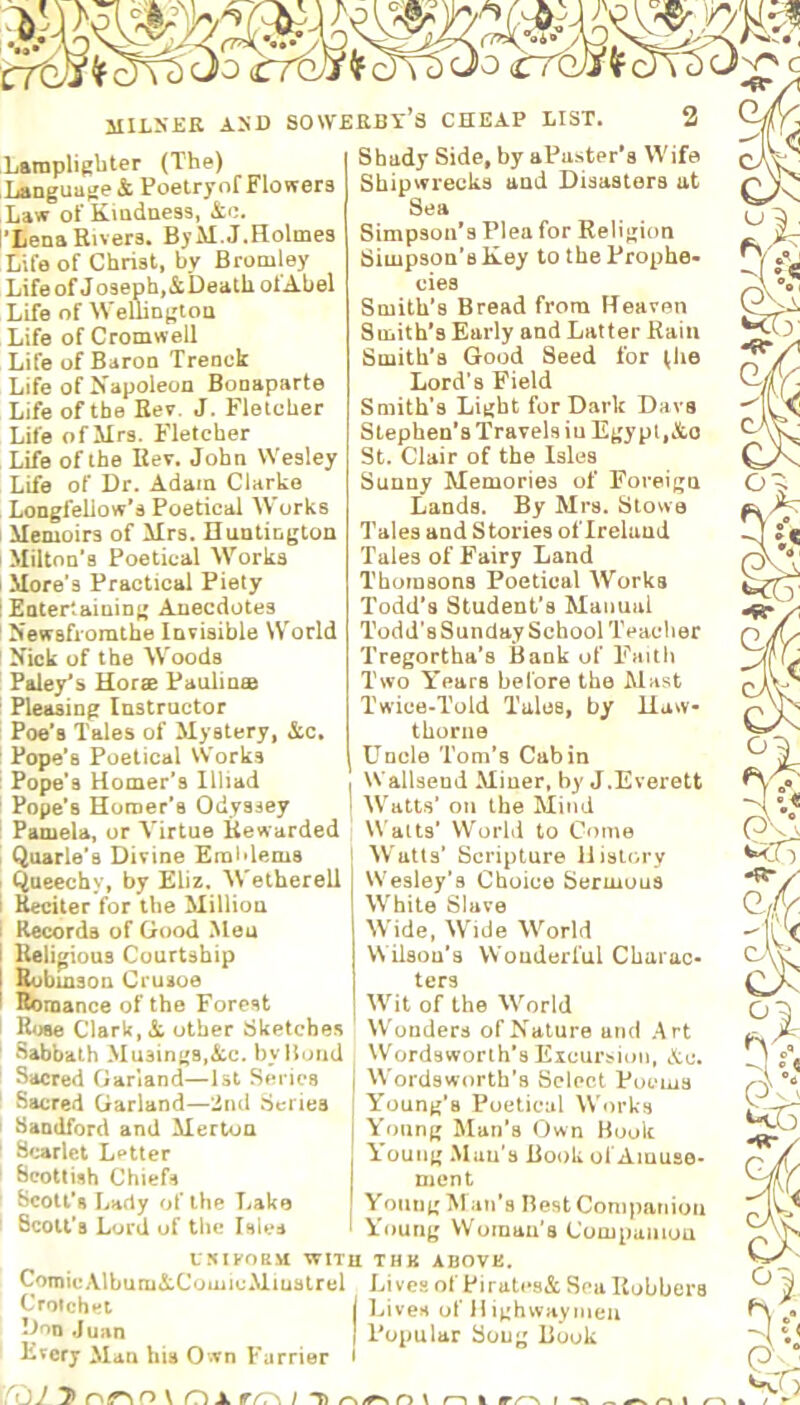 MILNER AND SOWERBY'S CHEAP LIST. 2
Lamplighter (The)
Language & Poetry of Flowers
Law of Kindness, &c.
'Lena Rivers. By M.J.Holmes
Life of Christ, by Bromley
Life of Joseph,& Death of Abel
Life of Wellington
Life of Cromwell
Life of Baron Trenck
Life of Napoleon Bonaparte
Life of the Rev. J. Fletcher
Life of Mrs. Fletcher
Life of the Rev. John Wesley
Life of Dr. Adam Clarke
Longfellow's Poetical Works
Memoirs of Mrs. Huntington
Milton's Poetical Works
More's Practical Piety
Entertaining Anecdotes
News from the Invisible World
Nick of the Woods
Paley's Horæ Paulinæ
Pleasing Instructor
Poe's Tales of Mystery, &c.
Pope's Poetical Works
Pope's Homer's Illiad
Pope's Homer's Odyssey
Pamela, or Virtue Rewarded
Quarle's Divine Emblems
Queechy, by Eliz. Wetherell
Reciter for the Million
Records of Good Men
Religious Courtship
Robinson Crusoe
Romance of the Forest
Rose Clark, & other Sketches
Sabbath Musings,&c. by Bond
Sacred Garland—1st Series
Sacred Garland—2nd Series
Sandford and Merton
Scarlet Letter
Scottish Chiefs
Scott's Lady of the Lake
Scott's Lord of the Isles
Shady Side, by a Paster's Wife
Shipwrecks and Disasters at
Sea
Simpson's Plea for Religion
Simpson's Key to the Prophe-
cies
Smith's Bread from Heaven
Smith's Early and Latter Rain
Smith's Good Seed for the
Lord's Field
Smith's Light for Dark Days
Stephen's Travels in Egypt,&c
St. Clair of the Isles
Sunny Memories of Foreign
Lands. By Mrs. Stowe
Tales and Stories of Ireland
Tales of Fairy Land
Thomsons Poetical Works
Todd's Student's Manual
Todd's Sunday School Teacher
Tregortha's Bank of Faith
Two Years before the Mast
Twice-Told Tales, by Haw-
thorne
Uncle Tom's Cabin
Wallsend Miner, by J.Everett
Watts' on the Mind
Watts' World to Come
Watts' Scripture History
Wesley's Choice Sermons
White Slave
Wide, Wide World
Wilson's Wonderful Charac-
ters
Wit of the World
Wonders of Nature and Art
Wordsworth's Excursion, &c.
Wordsworth's Select Poems
Young's Poetical Works
Young Man's Own Book
Young Man's Book of Amuse-
ment
Young Man's Best Companion
Young Woman's Companion
UNIFORM WITH THE ABOVE.
Comic Album & Comic Minstrel
Crotchet
Don Juan
Every Man his Own Farrier
Lives of Pirates & Sea Robbers
Lives of Highwaymen
Popular Song Book